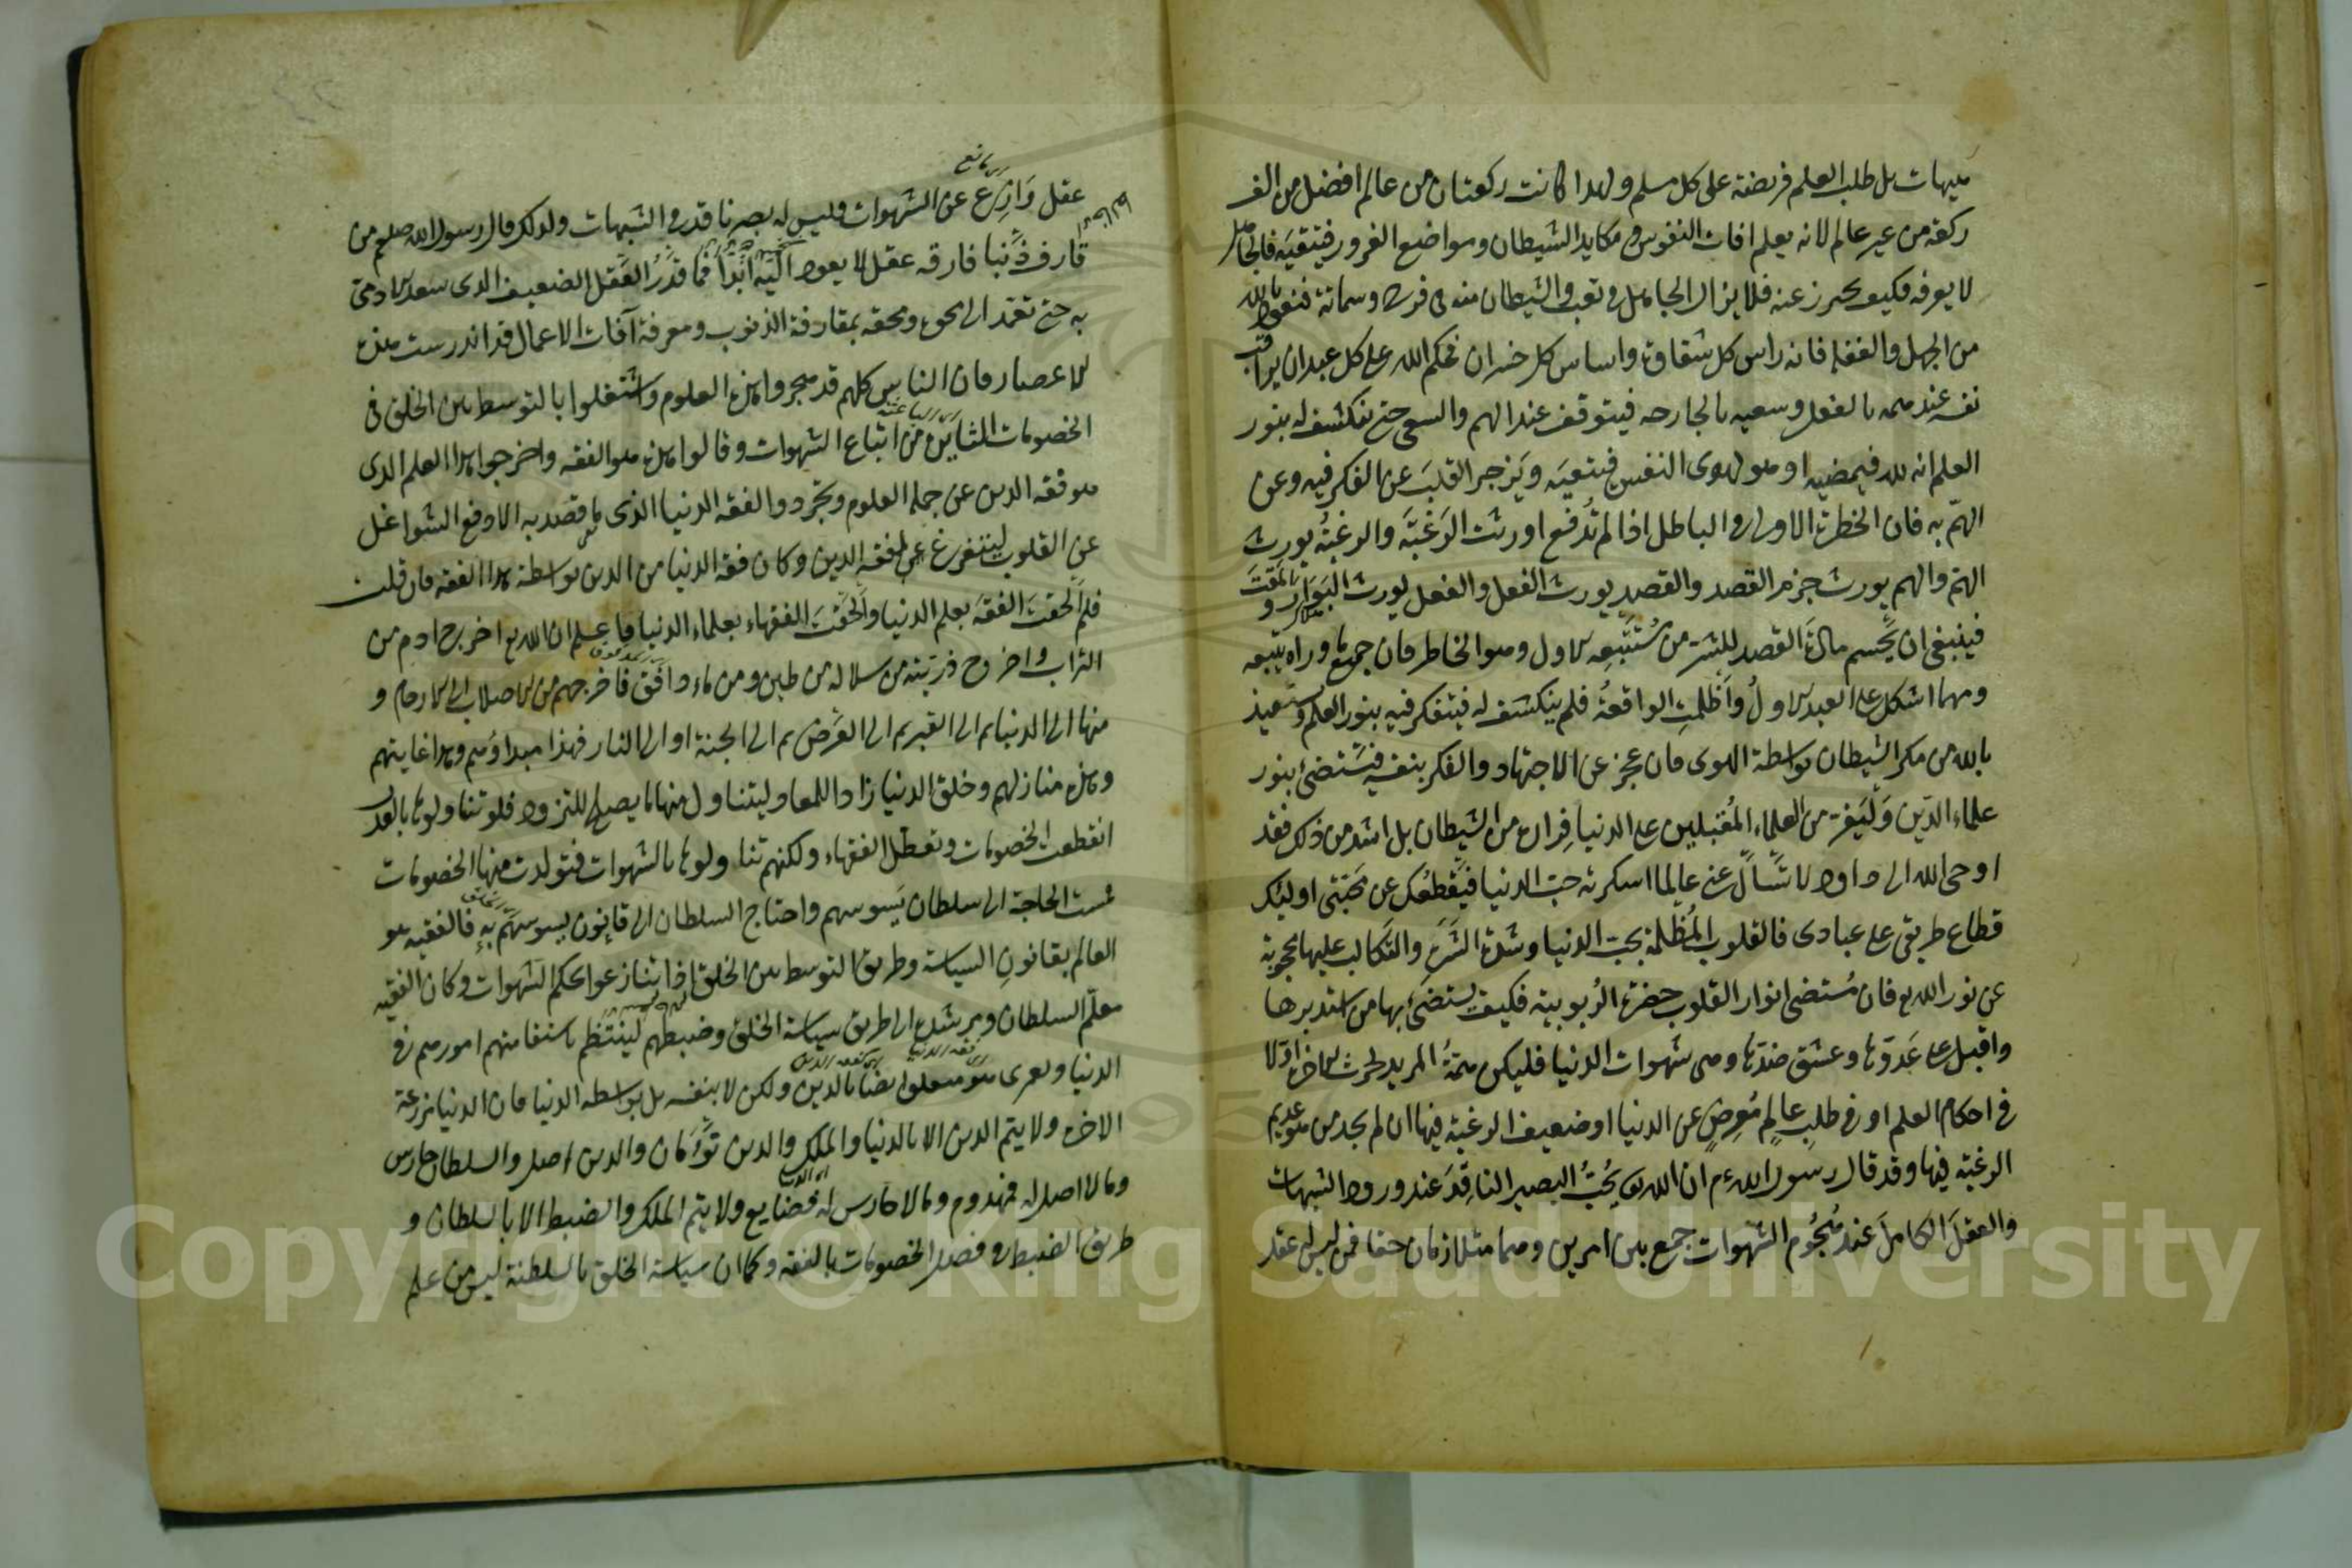 هيهات بل طلب العلم فريضة على كل مسلم ولهذا كانت ركعتان من عالم افضل من الف
ركعة من غير عالم لانه يعلم افات النفوس ومكايد الشيطان ومواضع الغرور فيتقيه فالجاهل
لا يعرفه فكيف يحترز عنه فلا يزال الجاهل في تعب والشيطان منه في فرح وشماتة فنعوذ بالله
من الجهل والغفلة فانه راس كل شقاوة واساس كل خسران فحكم الله على كل عبد ان يراقب
نفسه عند همه بالفعل وسعيه بالجارحه فيتوقف عند الهم والسعي حتى ينكشف له بنور
العلم انه لله فيمضيه او هو لهوى النفس فيتقيه ويزجر القلب عن الفكر فيه وعن
الهم به فان الخطرة الاولى في الباطل اذا لم تدفع اورثت الرغبة والرغبة يورث
الهم والهم يورث جزم القصد والقصد يورث الفعل والفعل يورث البوار والمقت
فينبغي ان يحسم مادة القصد للشر من منبعه الاول وهو الخاطر فان جميع ما وراه يتبعه
ومهما اشكل على العبد الاول واظلمت الواقعة فلم ينكشف له فيتفكر فيه بنور العلم ويستعيذ
بالله من مكر الشيطان بواسطة الهوى فان عجز عن الاجتهاد والفكر بنفسه فيستضئ بنور
علماء الدين وليفر من العلماء المقبلين على الدنيا فراره من الشيطان بل اشد من ذلك فقد
اوحى الله الى داود لا تسأل عني عالما اسكرته حب الدنيا فيقطعك عن محبتي اوليك
قطاع طريقي على عبادي فالقلوب المظلمة بحب الدنيا وشدة الشره والتكالب عليها محجوبة
عن نور الله تع فان مستضى انوار القلوب حضرة الربوبية فكيف يستضئ بها من استدبرها
واقبل على عدوها وعشق ضدها وهي شهوات الدنيا فليكن همة المريد اولا
في احكام العلم او في طلب عالم معرض عن الدنيا او ضعيف الرغبة فيها ان لم يجد من هو عديم
الرغبة فيها وقد قال رسول الله م ان الله يحب البصير الناقد عند ورود الشبهات
والعقل الكامل عند هجوم الشهوات جمع بين امرين وهما متلازمان حقا فمن ليس له عقل
عقل وازع عن الشهوات فليس له بصر ناقد في الشبهات ولذلك قال رسول الله صلعم من
قارف ذنبا فارقه عقل لا يعود اليه ابدا فما قدر العقل الضعيف الذي سعد الادمي
به حتى تعمد الى محوه ومحقه بمقارفة الذنوب ومعرفة آفات الاعمال قد اندرست هذه
الاعصار فان الناس كلهم قد هجروا هذه العلوم واشتغلوا بالتوسط بين الخلق في
الخصومات الثائرة من اتباع الشهوات وقالوا هذه هو الفقه واخرجوا هذا العلم الذي
هو فقه الدين عن جملة العلوم وتجردوا لفقه الدنيا الذي ما قصد به الا دفع الشواغل
عن القلوب ليتفرغ لفقه الدين وكان فقه الدنيا من الدين بواسطة هذا الفقه فان قلت
فلم الحقت الفقه بعلم الدنيا والحقت الفقهاء بعلماء الدنيا فاعلم ان الله تع اخرج ادم من
التراب واخرج ذريته من سلالة من طين ومن ماء دافق فاخرجهم من الاصلاب الى الارحام و
منها الى الدنيا ثم الى القبر ثم الى العرض ثم الى الجنة او الى النار فهذا مبداؤهم وهذا غايتهم
وهذه منازلهم وخلق الدنيا زادا للمعاد ليتناول منها ما يصلح للتزود فلو تناولوها بالعدل
انقطعت الخصومات وتعطل الفقهاء ولكنهم تناولوها بالشهوات فتولدت منها الخصومات
فمست الحاجة الى سلطان يسوسهم واحتاج السلطان الى قانون يسوسهم به فالفقيه هو
العالم بقانون السياسة وطريق التوسط بين الخلق اذا تنازعوا بحكم الشهوات وكان الفقيه
معلم السلطان ومرشده الى طريق سياسة الخلق وضبطهم لينتظم باستقامتهم امورهم في
الدنيا ولعمري هو متعلق ايضا بالدين ولكن لا بنفسه بل بواسطة الدنيا فان الدنيا مزرعة
الاخرة ولا يتم الدين الا بالدنيا والملك والدين توأمان والدين اصل والسلطان حارس
وما لا اصل له فمهدوم وما لا حارس له فضايع ولا يتم الملك والضبط الا بالسلطان و
طريق الضبط في فصل الخصومات بالفقه وكما ان سياسة الخلق بالسلطنة ليس من علم
Copyright © King Saud University